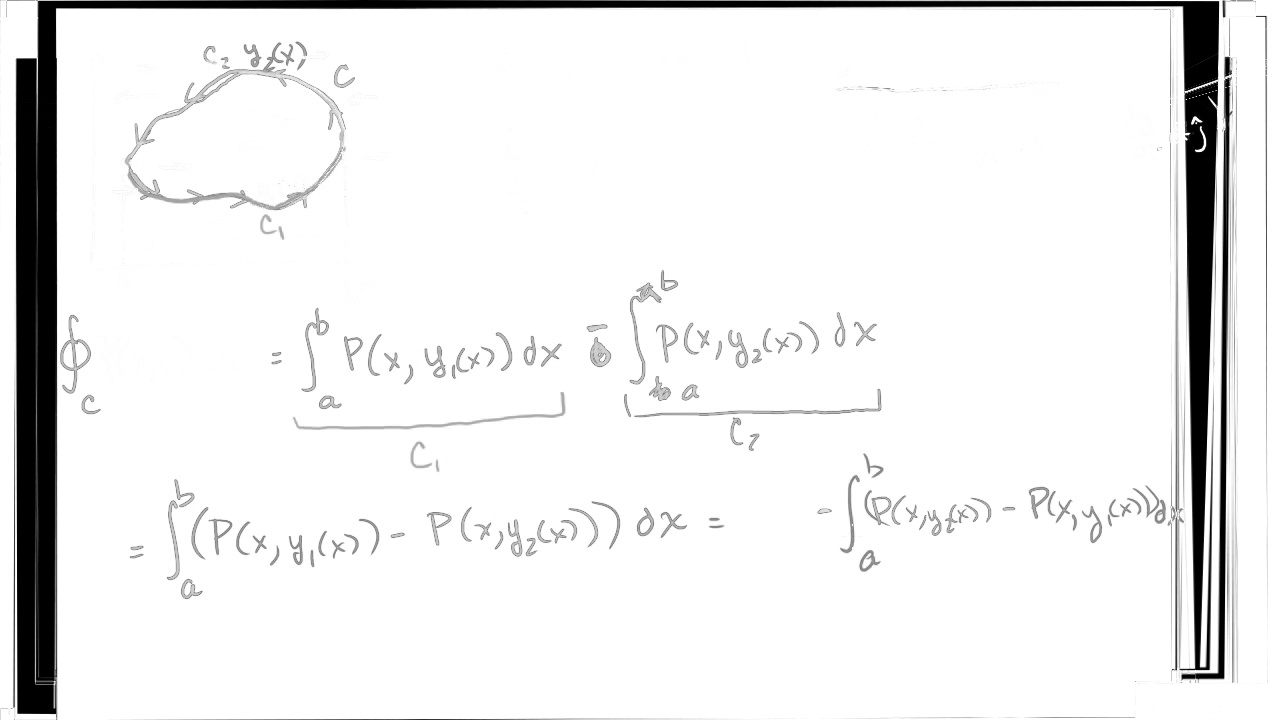 C₂ y₂(x)
C
ĵ
C₁
∮_C = ∫_a^b P(x, y₁(x)) dx - ∫_a^b P(x, y₂(x)) dx
C₁ C₂
= ∫_a^b (P(x, y₁(x)) - P(x, y₂(x))) dx = - ∫_a^b (P(x, y₂(x)) - P(x, y₁(x))) dx